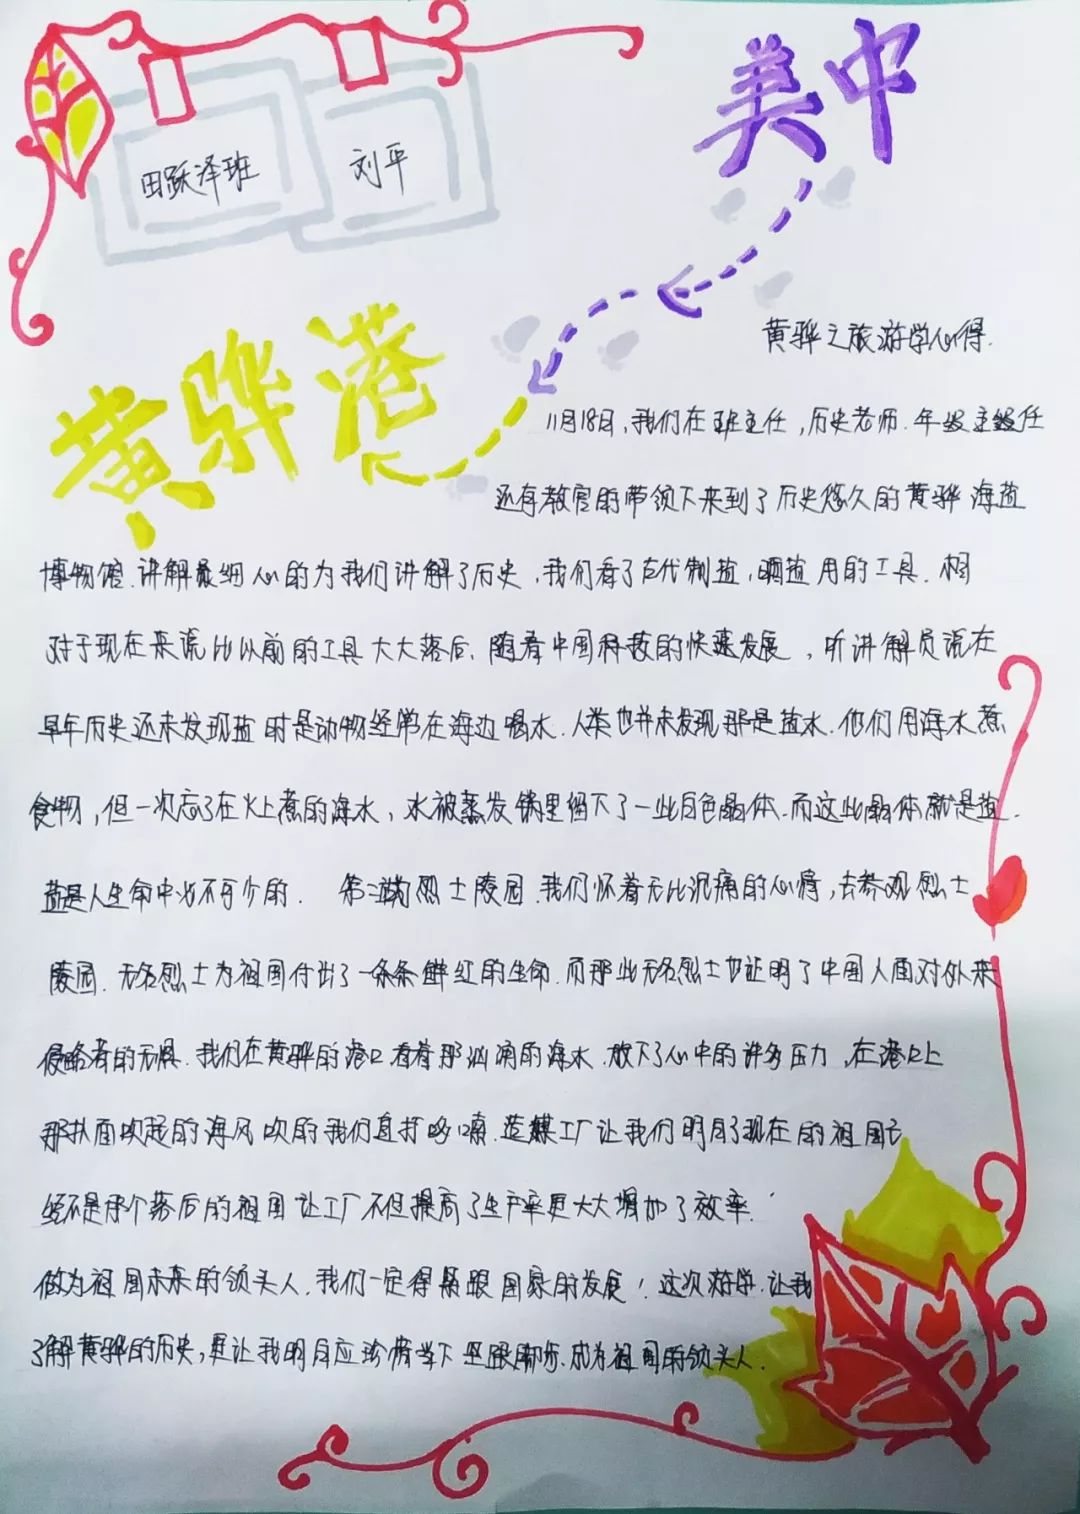 美中
田跃泽班 刘平
黄骅港
黄骅之旅游学心得.
11月18日,我们在班主任,历史老师.年级主任
还有教官的带领下来到了历史悠久的黄骅海盐
博物馆.讲解员细心的为我们讲解了历史,我们看了古代制盐,晒盐用的工具.相
对于现在来说比以前的工具大大落后.随着中国科技的快速发展,听讲解员说在
早年历史还未发现盐时是动物经常在海边喝水.人类也并未发现那是盐水.他们用海水煮
食物,但一次忘了在火上煮的海水,水被蒸发锅里留下了一些白色晶体.而这些晶体就是盐.
盐是人生命中必不可少的. 第二站烈士陵园.我们怀着无比沉痛的心情,去参观烈士
陵园.无名烈士为祖国付出了一条条鲜红的生命.而那些无名烈士也证明了中国人面对外来
侵略者的无惧.我们在黄骅的港口看着那汹涌的海水.放下了心中的许多压力,在港口上
那扑面吹起的海风吹的我们直打哆嗦.造煤工厂让我们明白了现在的祖国已
经不是那个落后的祖国让工厂不但提高了生产率更大大增加了效率.
做为祖国未来的领头人.我们一定得紧跟国家的发展!这次游学.让我
了解黄骅的历史,更让我明白应珍惜当下 紧跟脚步.成为祖国的领头人.